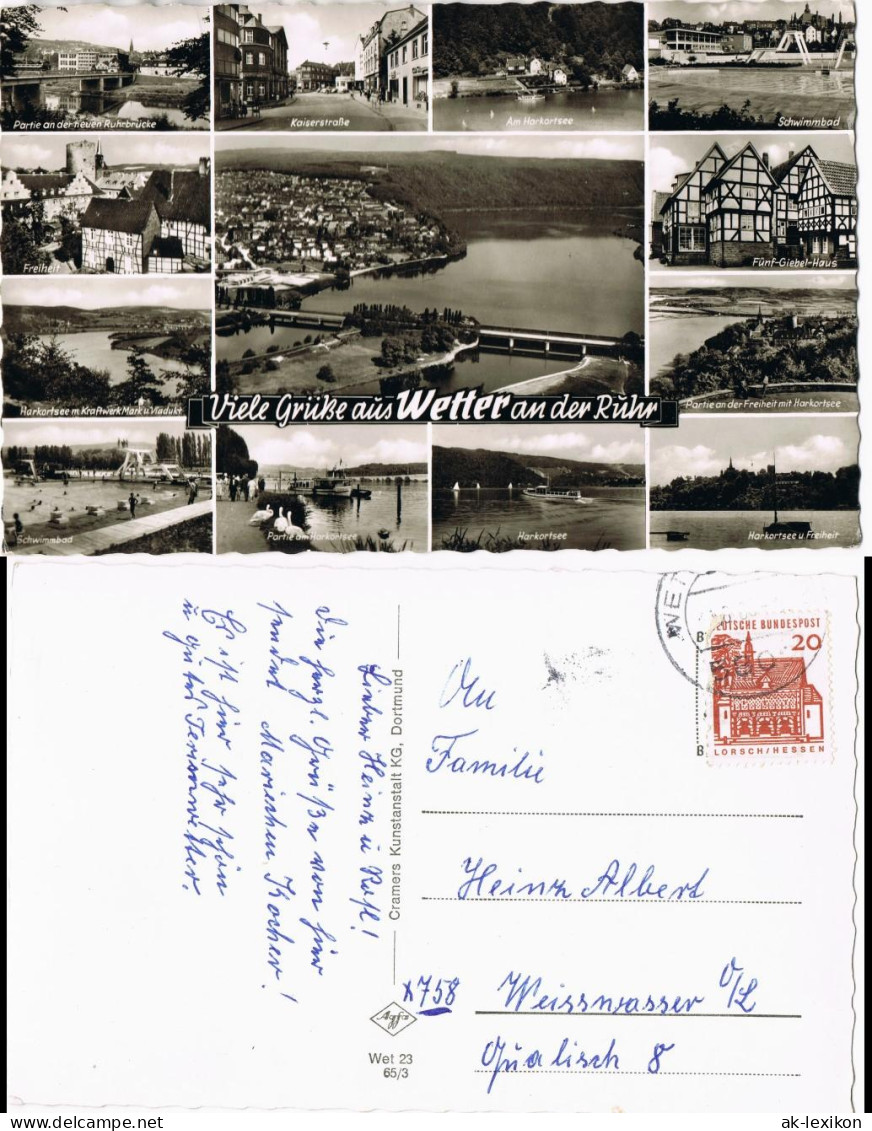 Partie an der neuen Ruhrbrücke
Kaiserstraße
Am Harkortsee
Schwimmbad
Freiheit
Fünf-Giebel-Haus
Harkortsee m. Kraftwerk Mark u. Viadukt
Partie an der Freiheit mit Harkortsee
Viele Grüße aus Wetter an der Ruhr
Schwimmbad
Partie am Harkortsee
Harkortsee
Harkortsee u. Freiheit
Lieber Heinz u
Die herzl. Grüße von hier
sendet Mariechen Kocher!
Es ist hier sehr schön
u gutes
Cramers Kunstanstalt KG, Dortmund
Agfa
Wet 23
65/3
DEUTSCHE BUNDESPOST
20
LORSCH/HESSEN
An
Familie
Heinz Albert
x758 Weisswasser O/L
8
ak-lexikon